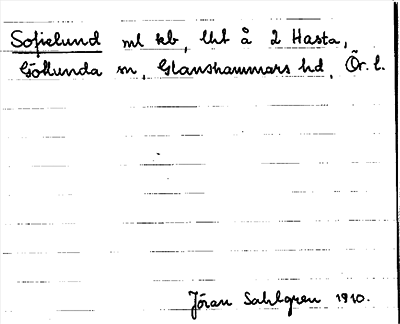 Sofielund ml kb, lht å 2 Hasta,
Götlunda sn, Glanshammars hd, Ör. l.
Jöran Sahlgren 1910.